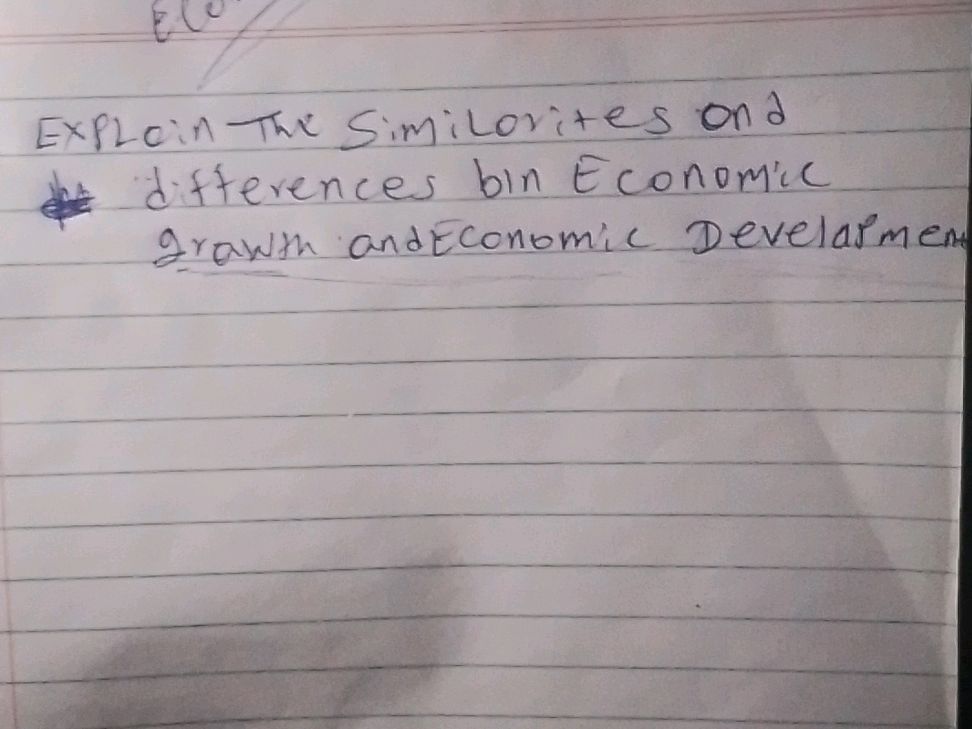 EXPLain The Similorites ond
differences bin Economic
grawth and Economic Develapmen